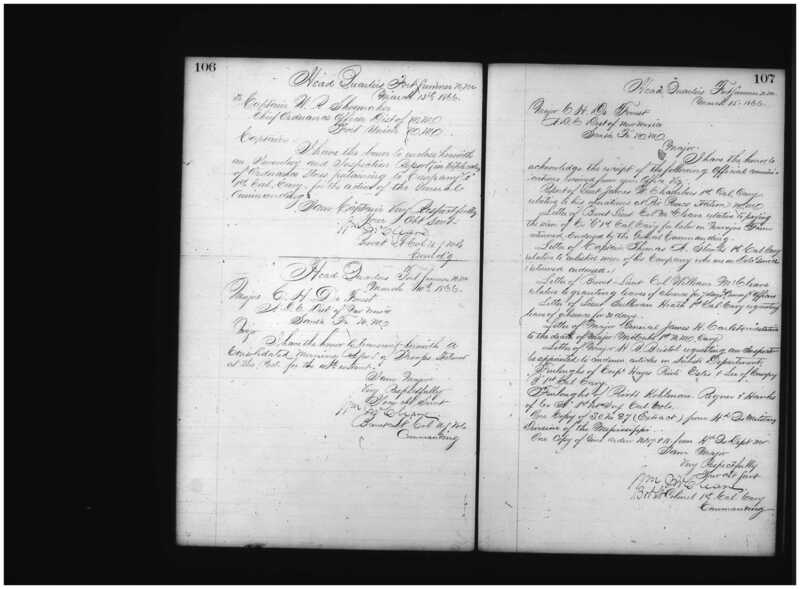 106
Head Quarters Fort Sumner N.M.
March 15th, 1866.
To Captain W. R. Shoemaker
Chief Ordnance Officer Dist of N.M.
Fort Union N.M.
Captain:
I have the honor to enclose herewith
an Inventory and Inspection Report (in triplicate)
of Ordnance Stores pertaining to Company
1st Cal. Cavy. for the action of the General
Commanding
I am Captain Very Respectfully
Your Obt Servt
Wm McCleave
Brevet Lt Col U.S. Vols
Comdg
Head Quarters Fort Sumner N.M.
March 1866.
Major C. H. De Forest
A.A.G. Dist of New Mexico
Santa Fe N.M.
Major
I have the honor to transmit herewith a
Consolidated morning report of Troops
at this Post for the
I am Major
Very Respectfully
Your Obt Servt
Wm McCleave
Brevet Lt Col U.S. Vols
Commanding
107
Head Quarters Fort Sumner N.M.
March 15. 1866.
Major C. H. De Forest
A.A.G. Dist of New Mexico
Santa Fe N.M.
Major:
I have the honor to
acknowledge the receipt of the following Official communi-
cations
Report of Lieut James Chambers 1st Cal. Cavy
relating to his operations at
Letter of Brevet Lieut Col McCleave relative to paying
the men of Co 1st Cal Cavy for labor on Navajo Farm
returned endorsed by the General Commanding.
Letter of Captain Thomas A. 1st Cal Cavy
relative to enlisted men of his Company who are on
(returned endorsed)
Letter of Brevet Lieut Col William McCleave
relative to granting leaves of absence for
Letter of Lieut Sullivan Heath 1st Cal Cavy requesting
leave of absence for 30 days.
Letter of Major General James H. Carleton relative
to the death of Major 1st N.M. Cavy
Letter of Major H. B. Bristol requesting an Inspector
be appointed to condemn articles in Department
Furloughs of Corpl Hayes Privts Estes & Lee of Company
1st Cal Cavy.
Furloughs of Privts Kohlman. & Hanks
of Co 1st Infy Cal Vols.
One Copy of S.O. No 27 (Extract) from Hd Qs Military
Division of the Mississippi.
One Copy of Genl Order from Hd Qs Dept
I am Major
Very Respectfully
Your Obt Servt
Wm McCleave
Bvt Lt Colonel 1st Cal. Cavy
Commanding